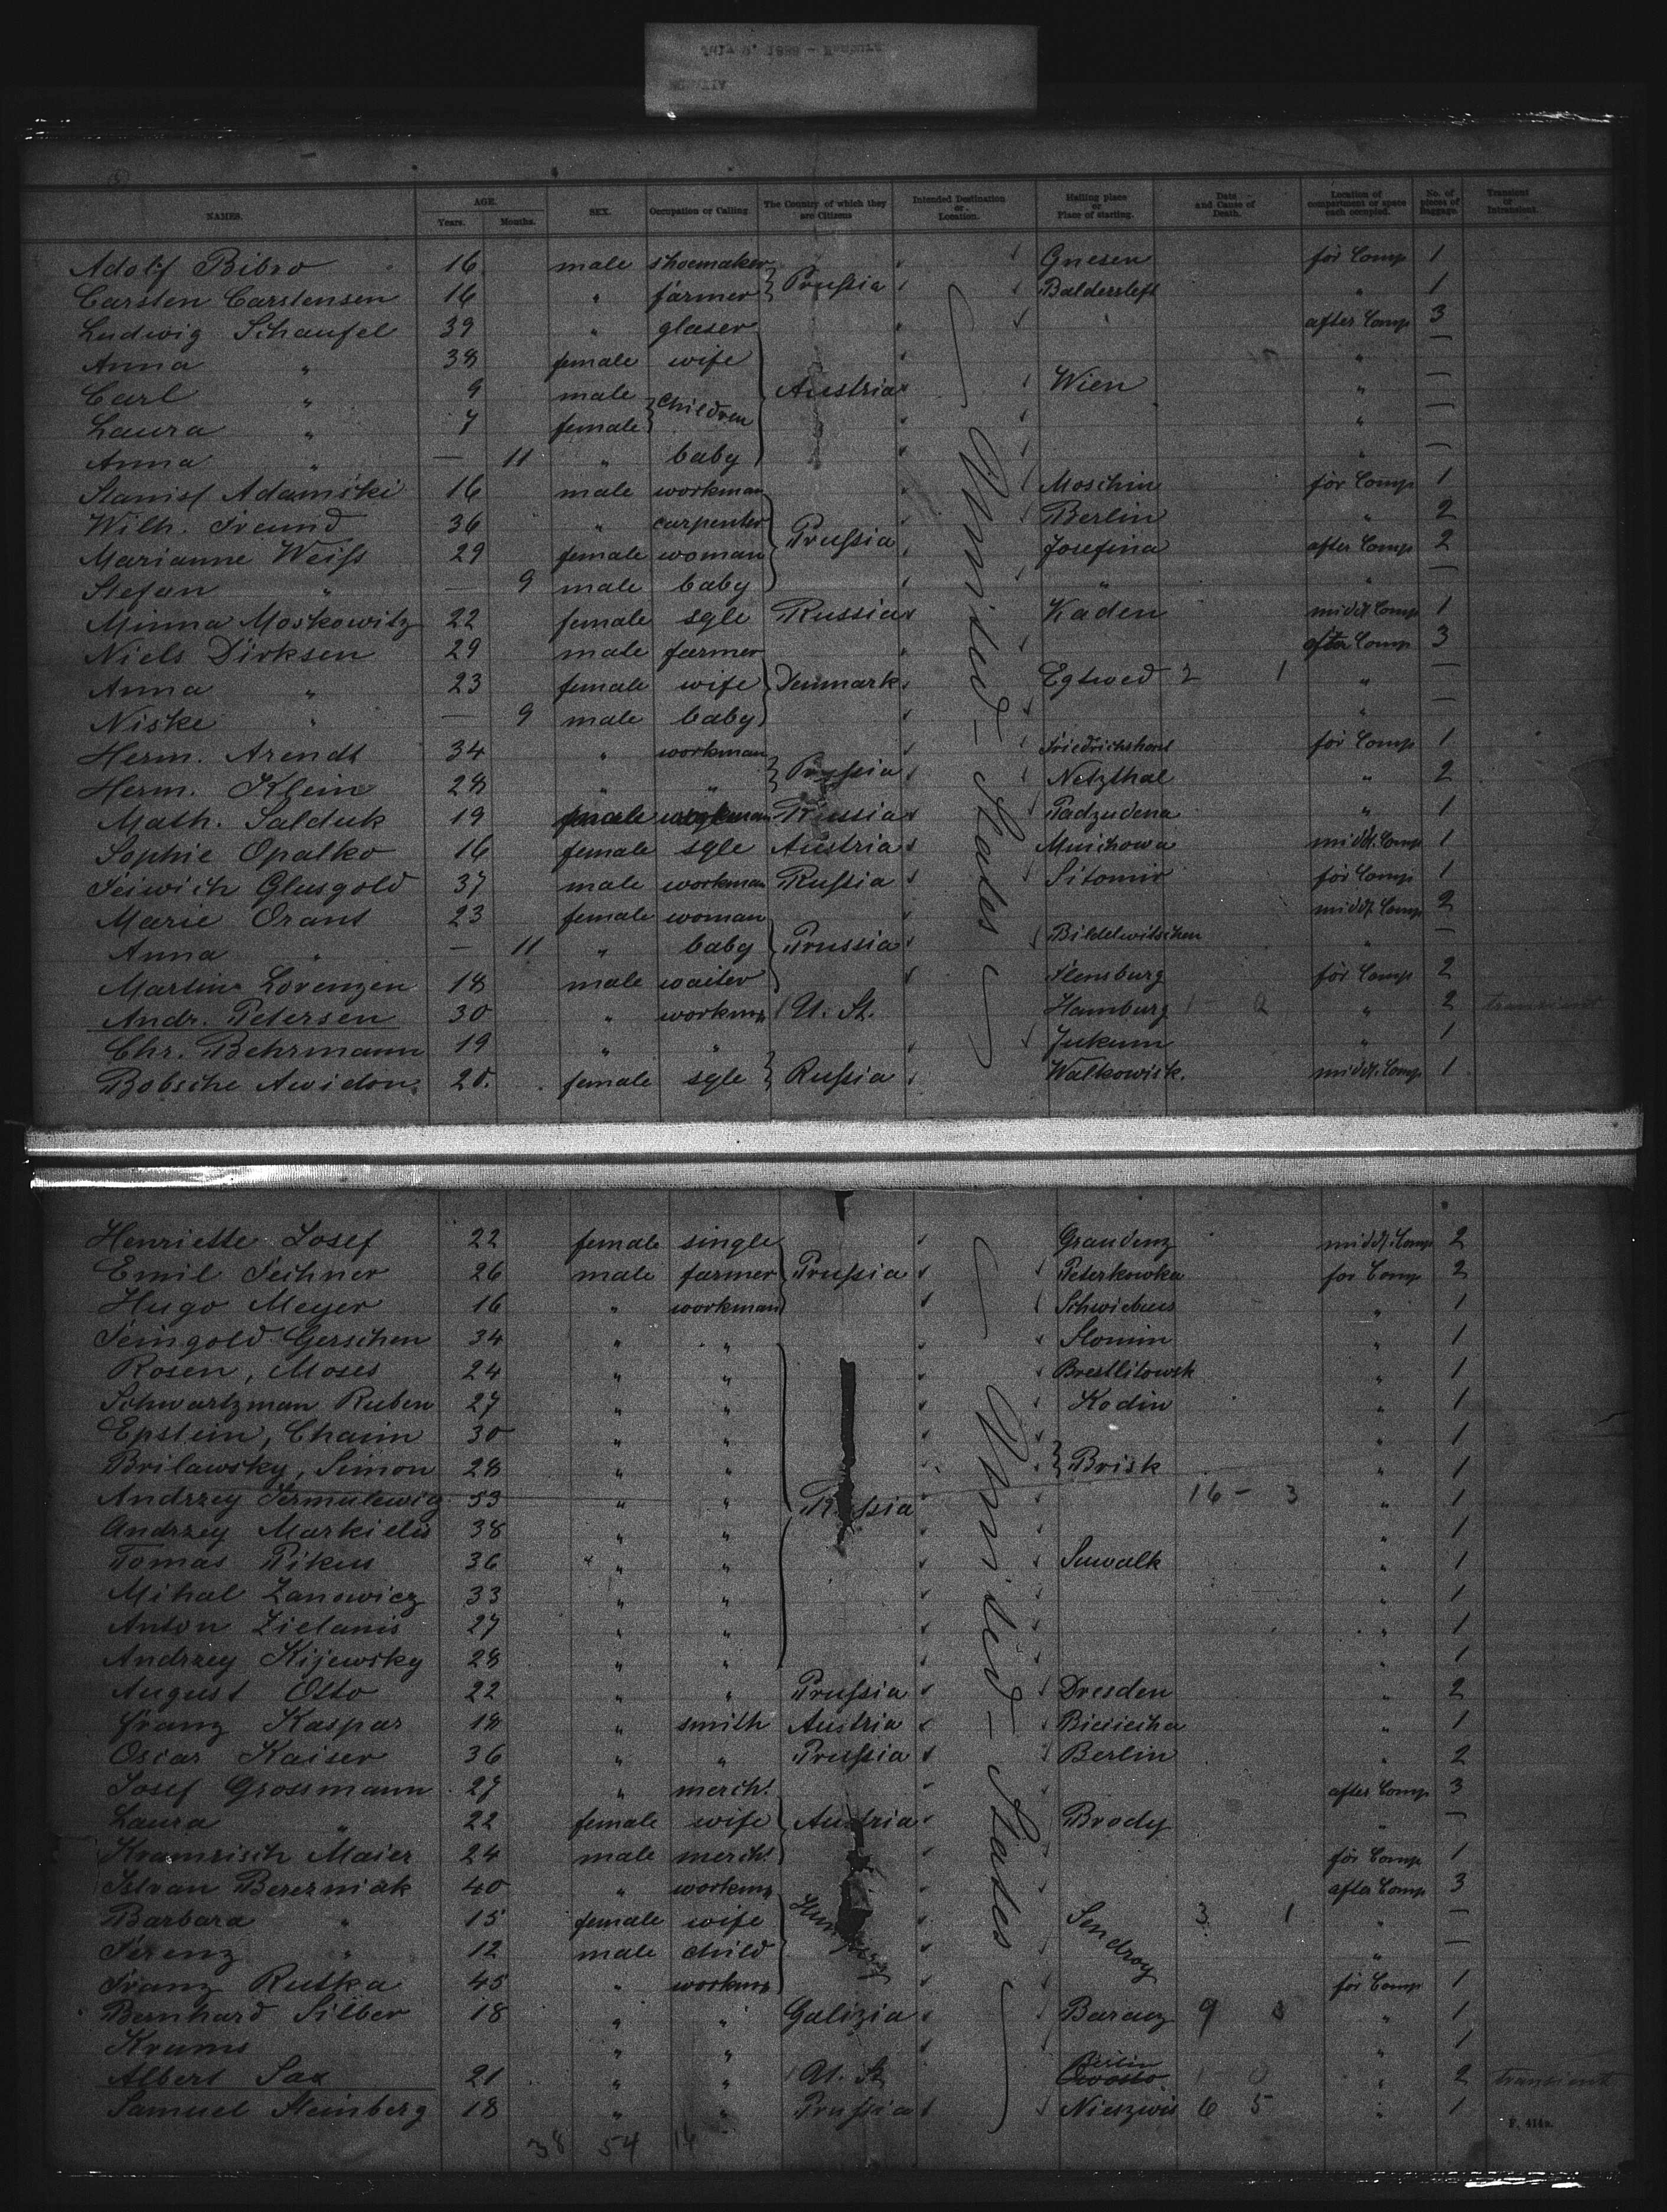 NAMES. AGE. Years. Months. SEX. Occupation or Calling. The Country of which they are Citizens Intended Destination or Location. Hailing place or Place of starting. Date and Cause of Death. Location of compartment or space each occupied. No. of pieces of Baggage. Transient or Intransient.
Adolf Bibro 16 male shoemaker Gnesen för Comp 1
Carsten Carstensen 16 " farmer Prußia " 1
Ludwig Schaufel 39 " glaser " after Comp 3
Anna " 38 female wife " —
Carl " 9 male children Austria Wien " —
Laura " 7 female " —
Anna " — 11 " baby " —
Stanisl Adamski 16 male workman Moschin för Comp 1
Wilh. Freund 36 " carpenter Prußia Berlin " 2
Marianne Weiß 29 female woman Josefina after Comp 2
Stefan " — 9 male baby " " —
Minna Moskowitz 22 female sgle Russia Kaden middl Comp 1
Niels Dirksen 29 male farmer after Comp 3
Anna " 23 female wife Denmark Egtwed 2 1 " —
Niske " — 9 male baby " —
Herm. Arendt 34 " workman för Comp 1
Herm. Klein 28 " " Prussia Netzthal " 2
Math. Salduk 19 male workman Padzudena " 1
Sophie Opalko 16 female sgle Austria middl. Comp 1
Feiwich Glusgold 37 male workman Rußia Sitomir för Comp 1
Marie Orant 23 female woman middl Comp 2
Anna " — 11 " baby Prussia " —
Martin Lorenzen 18 male waiter Flensburg för Comp 2
Andr. Petersen 30 " workmn U. St. Hamburg 1 - 0 " 2 transient
Chr. Behrmann 19 " " " 1
Bobsche Awidon 20. female sgle Rußia Walkowisk. middl. Comp 1
United - States
Henriette Josef 22 female single Graudenz middl. Comp 2
Emil Feihner 26 male farmer Prußia Peterkowka for Comp 2
Hugo Meyer 16 " workman Schwiebus " 1
Feingold Gerschen 34 " " Slonim " 1
Rosen, Moses 24 " " Brestlitowsk " 1
Schwartzman Ruben 27 " " Kodin " 1
Epstein, Chaim 30 " " " 1
Brilawsky, Simon 28 " " Brisk " 1
Andrzey 53 " " 16 - 3 " 1
Andrzey Markielis 38 " " " 1
Tomas Pikus 36 " " Suwalk " 1
Mihal Zanewicz 33 " " " 1
Anton Zielanis 27 " " " 1
Andrzey Kijewsky 28 " " " 1
August Otto 22 " " Prußia Dresden " 2
Franz Kaspar 18 " smith Austria " 1
Oscar Kaiser 36 " " Prußia Berlin " 2
Josef Grossmann 27 " mercht after Comp 3
Laura " 22 female wife Austria Brody " —
Kramrisch Maier 24 male mercht för Comp 1
Istvan Berezniak 40 " workmn after Comp 3
Barbara " 15 female wife Sendroy 3 1 " —
Ferenz " 12 male child " —
Franz Rutka 45 " workmn för Comp 1
Bernhard Silber 18 " " Galizia 9 " 1
Krams " " " 1
Albert Sax 21 " " U. St Berlin 1 - 0 " 2 transient
Samuel Steinberg 18 " " Prußia Nieszwis 6 5 " 1
United - States
F. 414a.
38 54 16